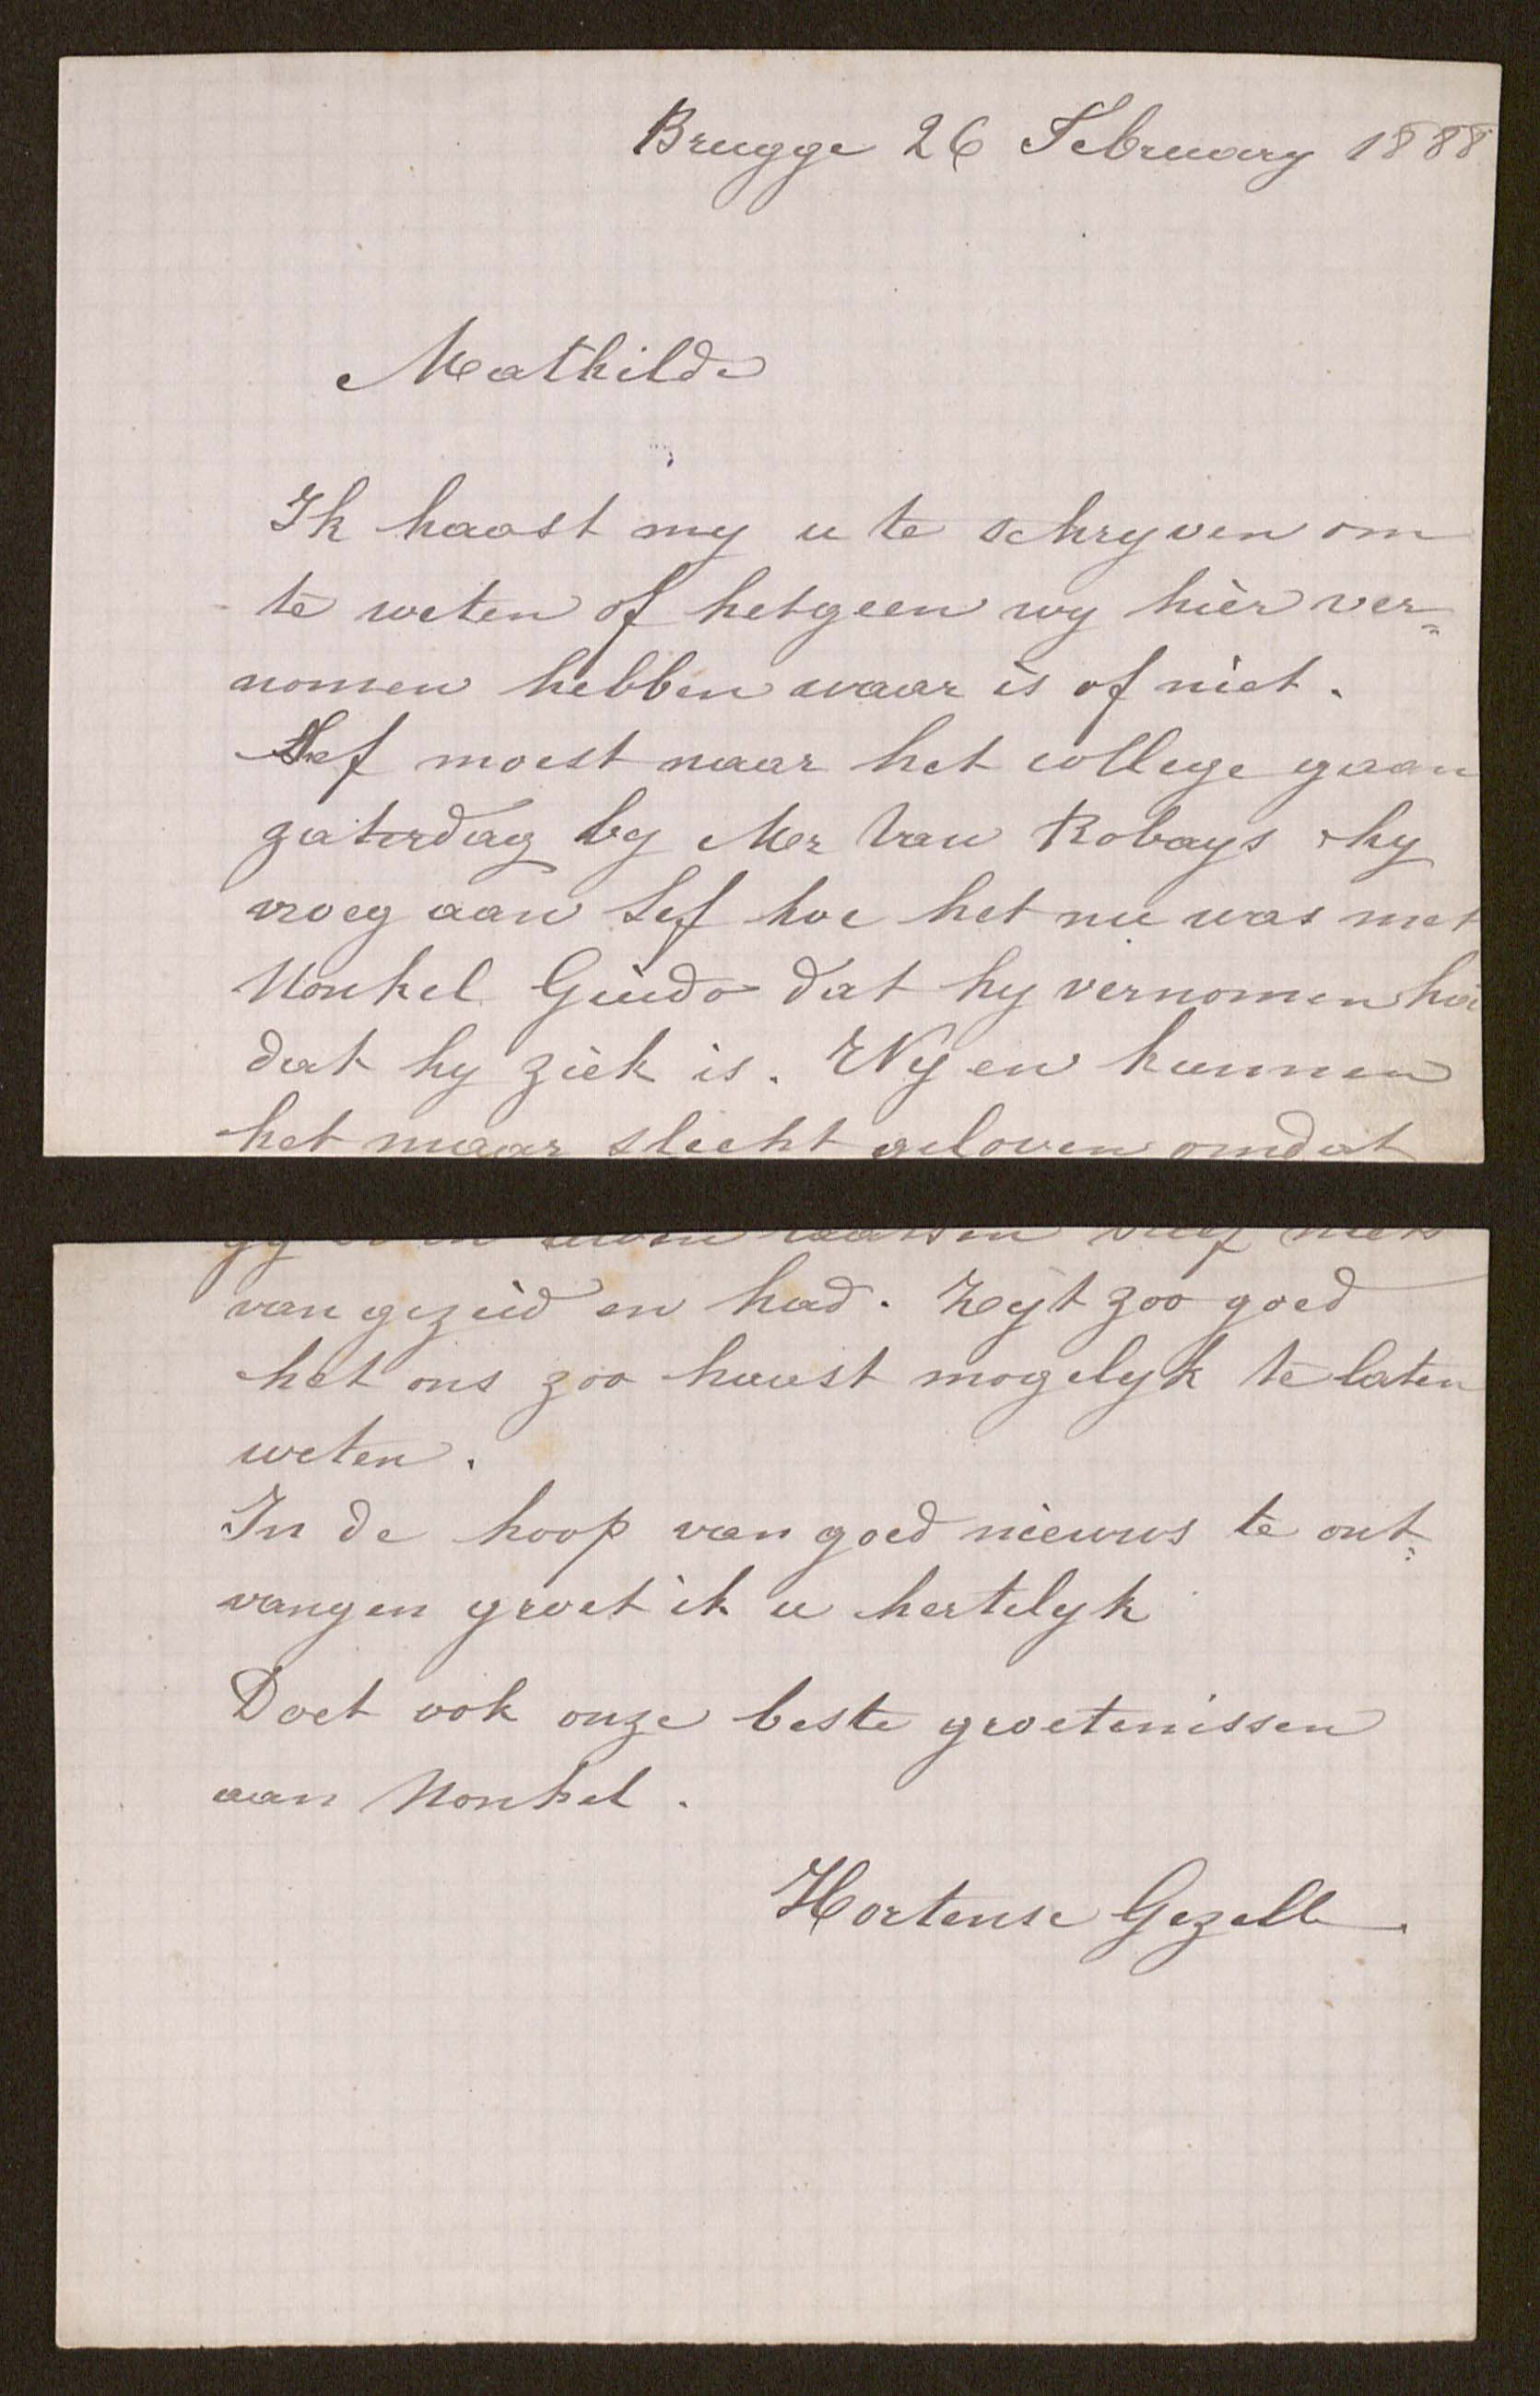 Brugge 26 February 1888
Mathilde
Ik haast my u te schryven om
te weten of hetgeen wy hier ver=
nomen hebben waar is of niet.
Sef moest naar het college gaan
zaterdag by Mer Van Robays & hy
vroeg aan Sef hoe het nu was met
Nonkel Guido dat hy vernomen ha
dat hy ziek is. Wy en kunnen
het maar slecht geloven omdat
gy in niets
van gezeid en had. Zyt zoo goed
het ons zoo haast mogelyk te laten
weten.
In de hoop van goed nieuws te ont=
vangen groet ik u hertelyk
Doet ook onze beste groetenissen
aan Nonkel.
Hortense Gezelle